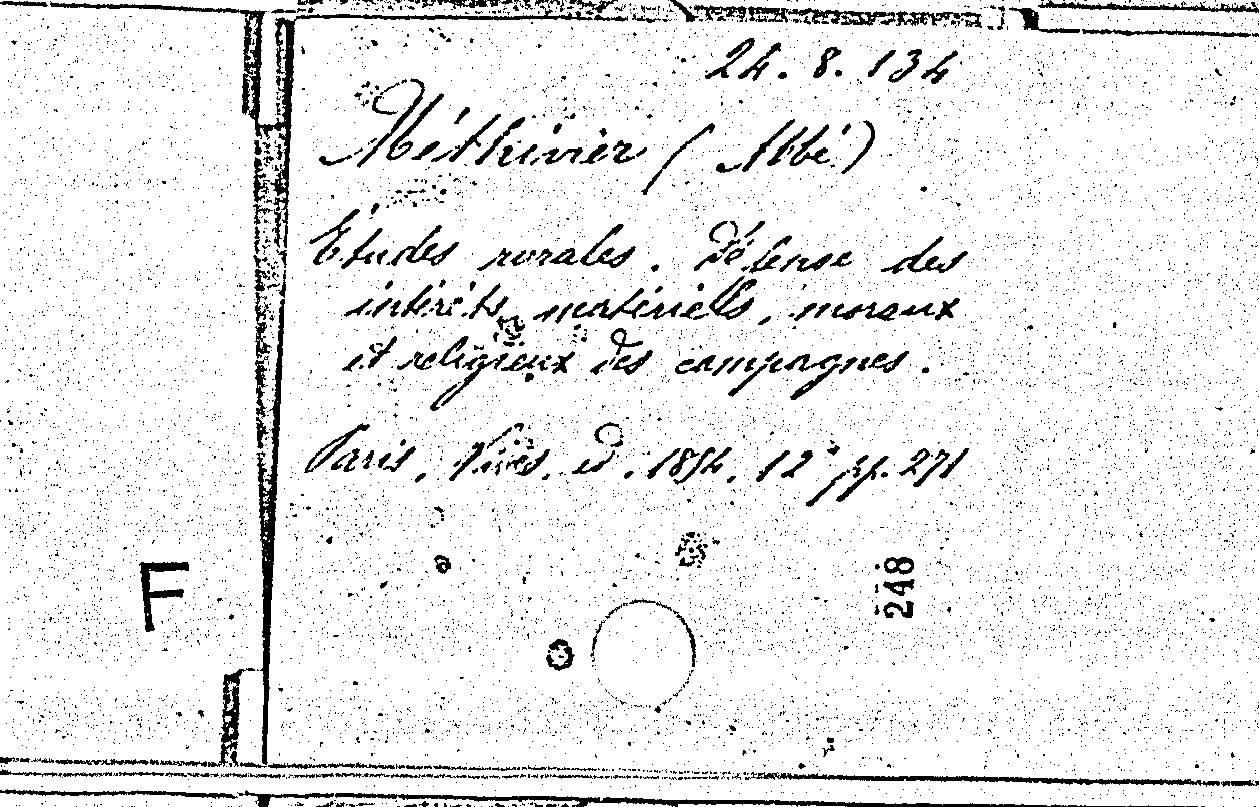 24.8.134
Méthivier (Abbé)
Études rurales. Défense des
intérêts matériels, moraux
et religieux des campagnes.
Paris, Vivès, éd. 1854. 12° pp. 271
248
F